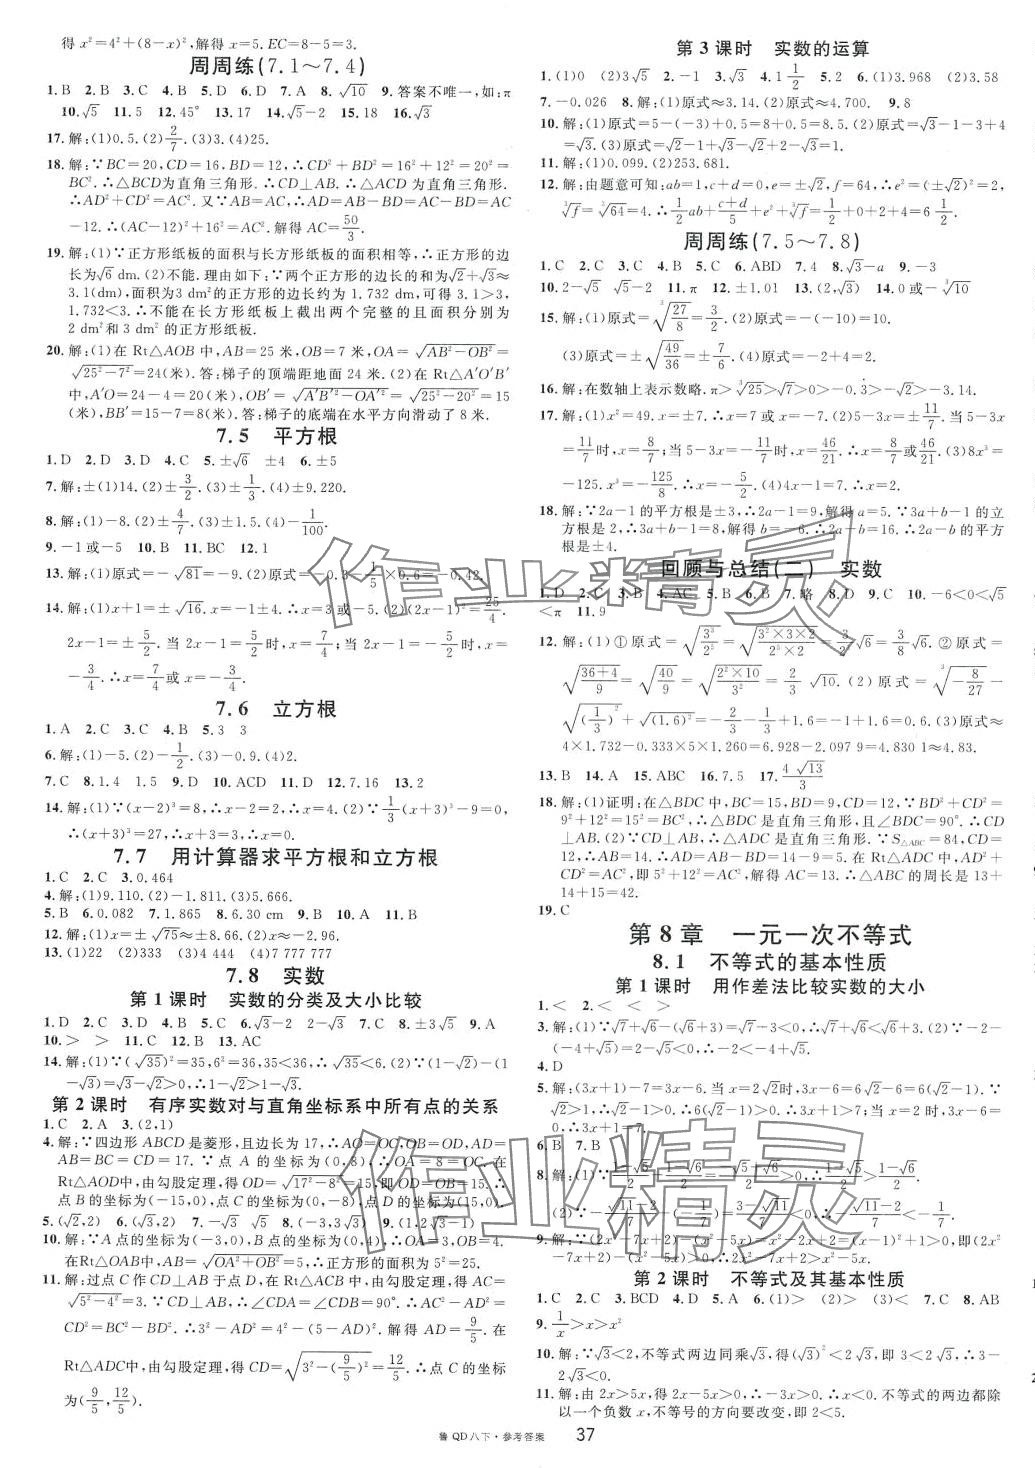 得 x²=4²+(8-x)²,解得 x=5.EC=8-5=3.
周周练(7.1～7.4)
1.B 2.B 3.C 4.B 5.D 6.D 7.A 8.√10 9.答案不唯一,如:π
10.√5 11.5 12.45° 13.17 14.√5-2 15.18 16.√3
17.解:(1)0.5.(2)2/7.(3)3.(4)25.
18.解:∵BC=20,CD=16,BD=12,∴CD²+BD²=16²+12²=20²=
BC².∴△BCD为直角三角形.∴CD⊥AB.∴△ACD 为直角三角形.
∴AD²+CD²=AC².又∵AB=AC,∴AD=AB-BD=AC-BD=AC
-12.∴(AC-12)²+16²=AC².解得 AC=50/3.
19.解:(1)∵正方形纸板的面积与长方形纸板的面积相等,∴正方形的边
长为√6 dm.(2)不能.理由如下:∵两个正方形的边长的和为√2+√3≈
3.1(dm),面积为3 dm²的正方形的边长约为 1.732 dm,可得 3.1>3,
1.732<3.∴不能在长方形纸板上截出两个完整的且面积分别为
2 dm²和 3 dm²的正方形纸板.
20.解:(1)在 Rt△AOB 中,AB=25 米,OB=7 米,OA=√(AB²-OB²)=
√(25²-7²)=24(米).答:梯子的顶端距地面 24 米.(2)在Rt△A′O′B′
中,A′O=24-4=20(米),OB′=√(A′B′²-OA′²)=√(25²-20²)=15
(米),BB′=15-7=8(米).答:梯子的底端在水平方向滑动了 8 米.
7.5 平方根
1.D 2.D 3.D 4.C 5.±√6 ±4 6.±5
7.解:±(1)14.(2)±3/2.(3)±1/5.(4)±9.220.
8.解:(1)-8.(2)±4/7.(3)1.5.(4)-1/100.
9.-1或-5 10.B 11.BC 12.1
13.解:(1)原式=-√81=-9.(2)原式=-0.3-1/5×0.6=-0.42.
14.解:(1)x+1=±√16.x=-1±4.∴x=3或-5.(2)(2x-1)²=25/4.
2x-1=±5/2.当 2x-1=5/2时,x=7/4;当 2x-1=-5/2时,x=
-3/4.∴x=7/4或x=-3/4.
7.6 立方根
1.A 2.C 3.C 4.B 5.3 3
6.解:(1)-5.(2)-1/2.(3)-0.9.(4)2.
7.C 8.1.4 1.5 9.D 10.ACD 11.D 12.7.16 13.2
14.解:(1)∵(x-2)³=8,∴x-2=2,∴x=4.(2)∵1/3(x+3)³-9=0,
∴(x+3)³=27,∴x+3=3,∴x=0.
7.7 用计算器求平方根和立方根
1.C 2.C 3.0.464
4.解:(1)9.110.(2)-1.811.(3)5.666.
5.B 6.0.082 7.1.865 8.6.30 cm 9.B 10.A 11.B
12.解:(1)x=±√75≈±8.66.(2)x≈-2.96.
13.(1)22 (2)333 (3)4 444 (4)7 777 777
7.8 实数
第 1 课时 实数的分类及大小比较
1.D 2.C 3.D 4.B 5.C 6.√3-2 2-√3 7.C 8.±3√5 9.A
10.> > 11.C 12.B 13.AC
14.解:(1)∵(√35)²=35,6²=36,35<36,∴√35<6.(2)∵(1-√2)-(1
-√3)=√3-√2>0,∴1-√2>1-√3.
第 2 课时 有序实数对与直角坐标系中所有点的关系
1.C 2.A 3.(2,1)
4.解:∵四边形 ABCD 是菱形,且边长为 17,∴OA=OC,OB=OD,AD=
AB=BC=CD=17.∵点 A 的坐标为(0,8),∴OA=8=OC.在
Rt△AOD中,由勾股定理,得 OD=√(17²-8²)=15,即OD=15=OB.∴
点 B 的坐标为(-15,0),点 C 的坐标为(0,-8),点 D 的坐标为(15,0).
5.(√2,2) 6.(√3,2) 7.-√3 √5 8.(-3,3√3) 9.(1,2√3-1)
10.解:∵A点的坐标为(-3,0),B 点的坐标为(0,4),∴OA=3,OB=4.
在Rt△OAB中,AB=√(OA²+OB²)=5,∴正方形的面积为 5²=25.
11.解:过点 C 作 CD⊥AB 于点 D,在 Rt△ACB 中,由勾股定理,得 AC=
√(5²-4²)=3.∵CD⊥AB,∴∠CDA=∠CDB=90°.∴AC²-AD²=
CD²=BC²-BD².∴3²-AD²=4²-(5-AD)².解得 AD=9/5.在
Rt△ADC中,由勾股定理,得 CD=√(3²-(9/5)²)=12/5.∴点 C 的坐标
为(9/5,12/5).
第 3 课时 实数的运算
1.(1)0 (2)3√5 2.-1 3.√3 4.1 1/2 5.2 6.(1)3.968 (2)3.58
7.-0.026 8.解:(1)原式≈3.14.(2)原式≈4.700. 9.8
10.解:(1)原式=5-(-3)+0.5=8+0.5=8.5.(2)原式=√3-1-3+4
=√3.(3)原式=√2-1+√3-√2+2-√3=1.
11.解:(1)0.099.(2)253.681.
12.解:由题意可知:ab=1,c+d=0,e=±√2,f=64,∴e²=(±√2)²=2,
³√f=³√64=4.∴1/2ab+(c+d)/5+e²+³√f=1/2+0+2+4=6 1/2.
周周练(7.5～7.8)
1.C 2.C 3.C 4.B 5.C 6.ABD 7.4 8.√3-a 9.-3
10.2-√5 √5-2 11.π 12.±1.01 13.(2,√3) 14.0或-³√10
15.解:(1)原式=³√(27/8)=3/2.(2)原式=-(-10)=10.
(3)原式=±√(49/36)=±7/6.(4)原式=-2+4=2.
16.解:在数轴上表示数略.π>³√25>√7>0>-0.3̇>-√2>-3.14.
17.解:(1)x²=49.x=±7.∴x=7 或 x=-7.(2)5-3x=±11/7.当 5-3x
=11/7时,x=8/7;当 5-3x=-11/7时,x=46/21.∴x=8/7或46/21.(3)8x³=
-125.x³=-125/8.∴x=-5/2.(4)4x=17-5.4x=12.∴x=3.
18.解:∵2a-1 的平方根是±3,∴2a-1=9,解得 a=5.∵3a+b-1 的立
方根是 2,∴3a+b-1=8,解得 b=-6.∴2a-b=16.∴2a-b 的平方
根是±4.
回顾与总结(二) 实数
1.D 2.C 3.B 4.AC 5.B 6.B 7.略 8.D 9.C 10.-6<0<√5
<π 11.9
12.解:(1)①原式=√(3³/2⁵)=√((3²×3×2)/(2⁵×2))=3/2³√6=3/8√6.②原式=
√((36+4)/9)=√(40/9)=√((2²×10)/3²)=2/3√10.(2)原式=³√(-8/27)-
√((1/3)²)+√((1.6)²)=-2/3-1/3+1.6=-1+1.6=0.6.(3)原式≈
4×1.732-0.333×5×1.260=6.928-2.097 9=4.830 1≈4.83.
13.B 14.A 15.ABC 16.7.5 17.4√13/3
18.解:(1)证明:在△BDC 中,BC=15,BD=9,CD=12,∵BD²+CD²=
9²+12²=15²=BC²,∴△BDC 是直角三角形,且∠BDC=90°.∴CD
⊥AB.(2)∵CD⊥AB,∴△ADC 是直角三角形.∵S△ABC=84,CD=
12,∴AB=14.∴AD=AB-BD=14-9=5.在 Rt△ADC 中,AD²+
CD²=AC²,即 5²+12²=AC².解得 AC=13.∴△ABC 的周长是 13+
14+15=42.
19.C
第 8 章 一元一次不等式
8.1 不等式的基本性质
第 1 课时 用作差法比较实数的大小
1.< 2.< < >
3.解:(1)∵√7+√6-(√6+3)=√7-3<0,∴√7+√6<√6+3.(2)∵-2-
(-4+√5)=2-√5<0,∴-2<-4+√5.
4.D
5.解:(3x+1)-7=3x-6=3(x-2).当 x=2√2时,3x-6=6(√2-1).∵
√2>1,∴√2-1>0.∴3x-6>0.∴3x+1>7;当 x=2 时,3x-6=0.
∴3x+1=7.
6.B 7.B
8.
9.
第 2 课时 不等式及其基本性质
1.C 2.C 3.BCD 4.D 5.A 6.(1)> (2)> (3)< 7.C 8.AB
9.1/x>x>x²
10.解:∵√3<2,不等式两边同乘√3,得(√3)²<2√3,即 3<2√3.∴3-
2√3<0.
11.解:由 2x>5x,得 2x-5x>0,∴-3x>0.∴x<0.不等式的两边都除
以一个负数 x,不等号的方向要改变,即 2<5.
鲁 QD八下·参考答案 37
作业精灵
作业精灵